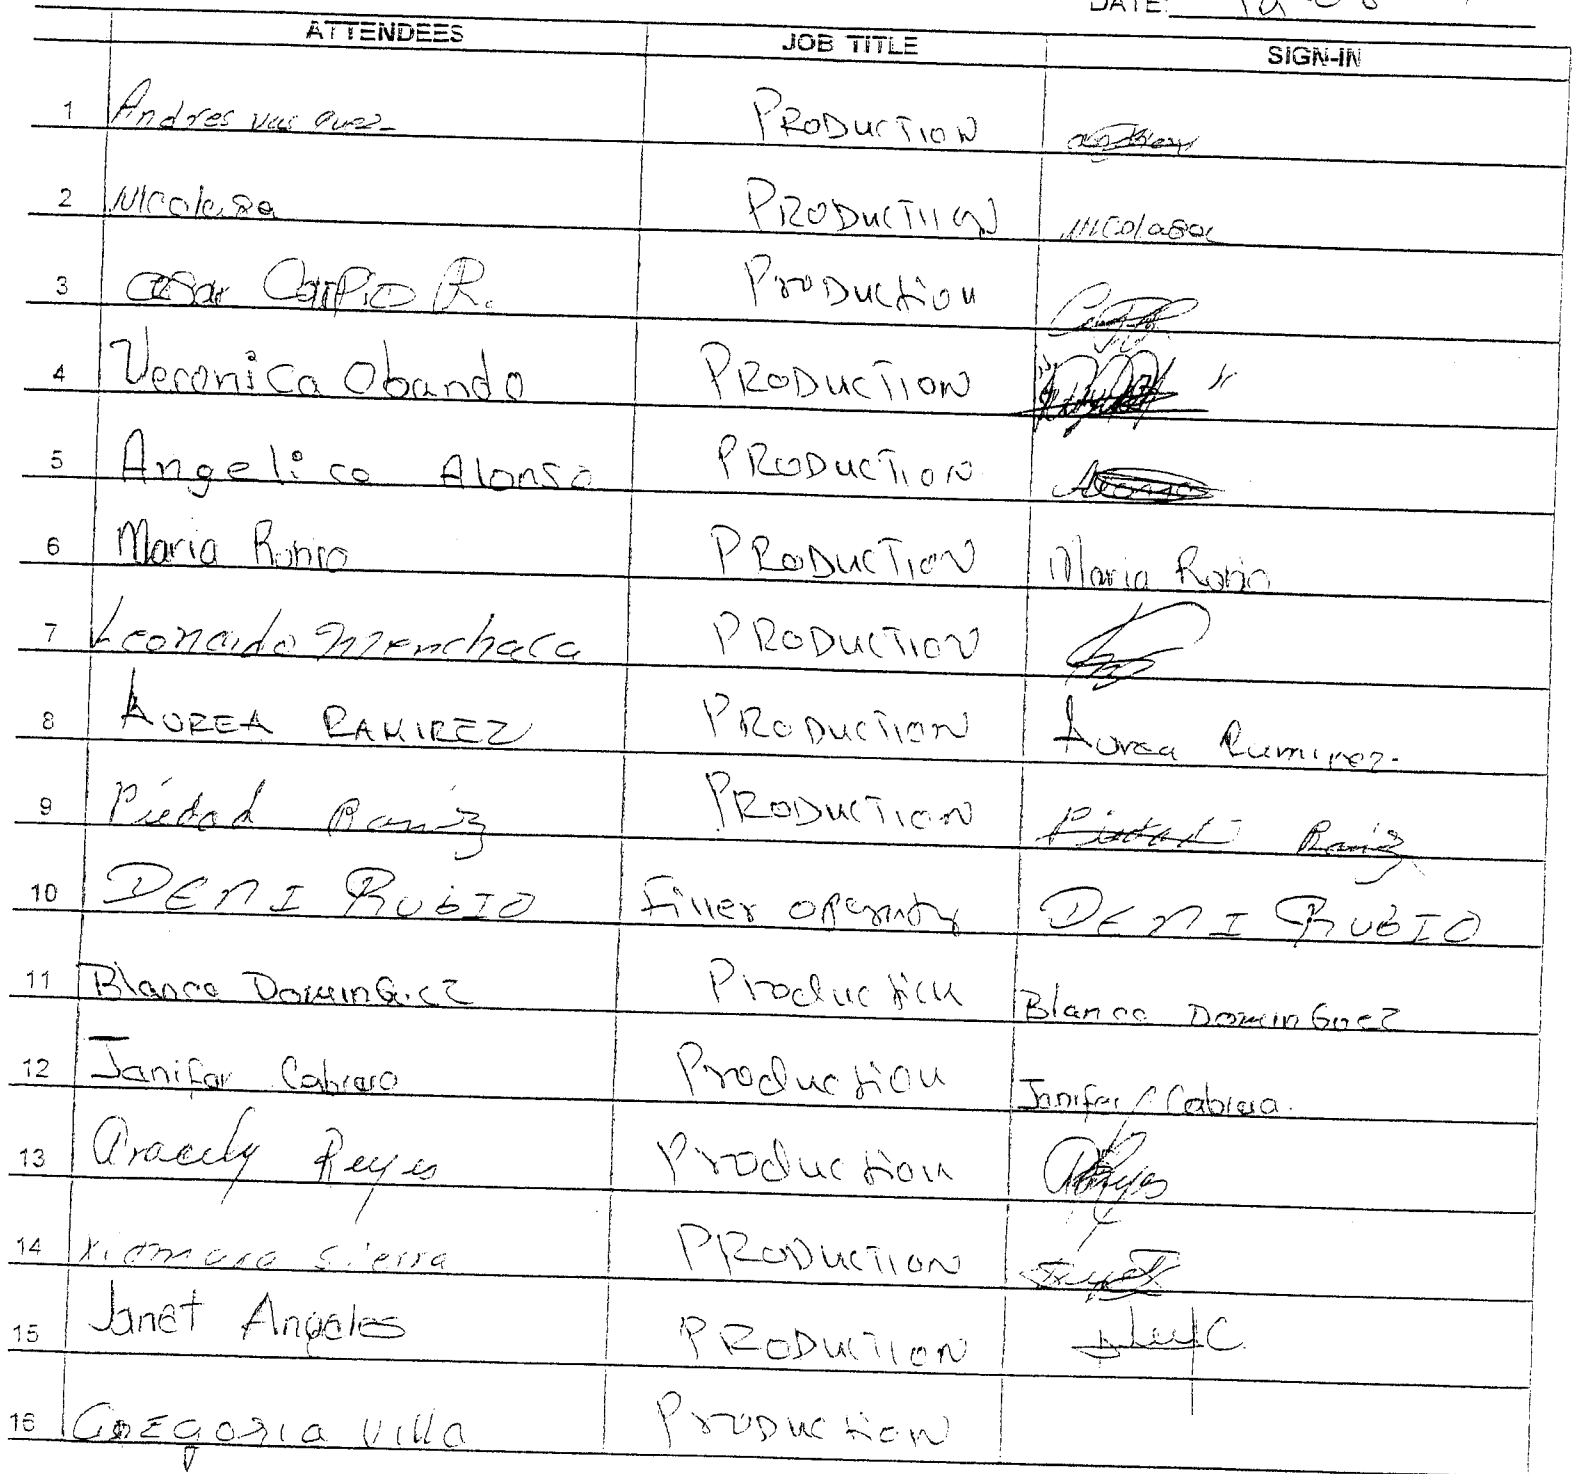 DATE:
ATTENDEES JOB TITLE SIGN-IN
1 Andres vas quez- PRODUCTION
2 Nicolasa PRODUCTION Nicolasa
3 cesar Carpio R. Production
4 Veronica Obando PRODUCTION
5 Angelica Alonso PRODUCTION Alonso
6 Maria Rubio PRODUCTION Maria Rubio
7 Leonardo Menchaca PRODUCTION
8 AUREA RAMIREZ PRODUCTION Aurea Ramirez-
9 Piedad Ramirez PRODUCTION Piedad Ramirez
10 DENI RUBIO Filler operator DENI RUBIO
11 Blanca DominGuez Production Blanca DominGuez
12 Janifar Cabrera Production Janifar Cabrera.
13 Aracely Reyes Production
14 Xiomara Sierra PRODUCTION
15 Janet Angeles PRODUCTION
16 GREGORIA Villa Production